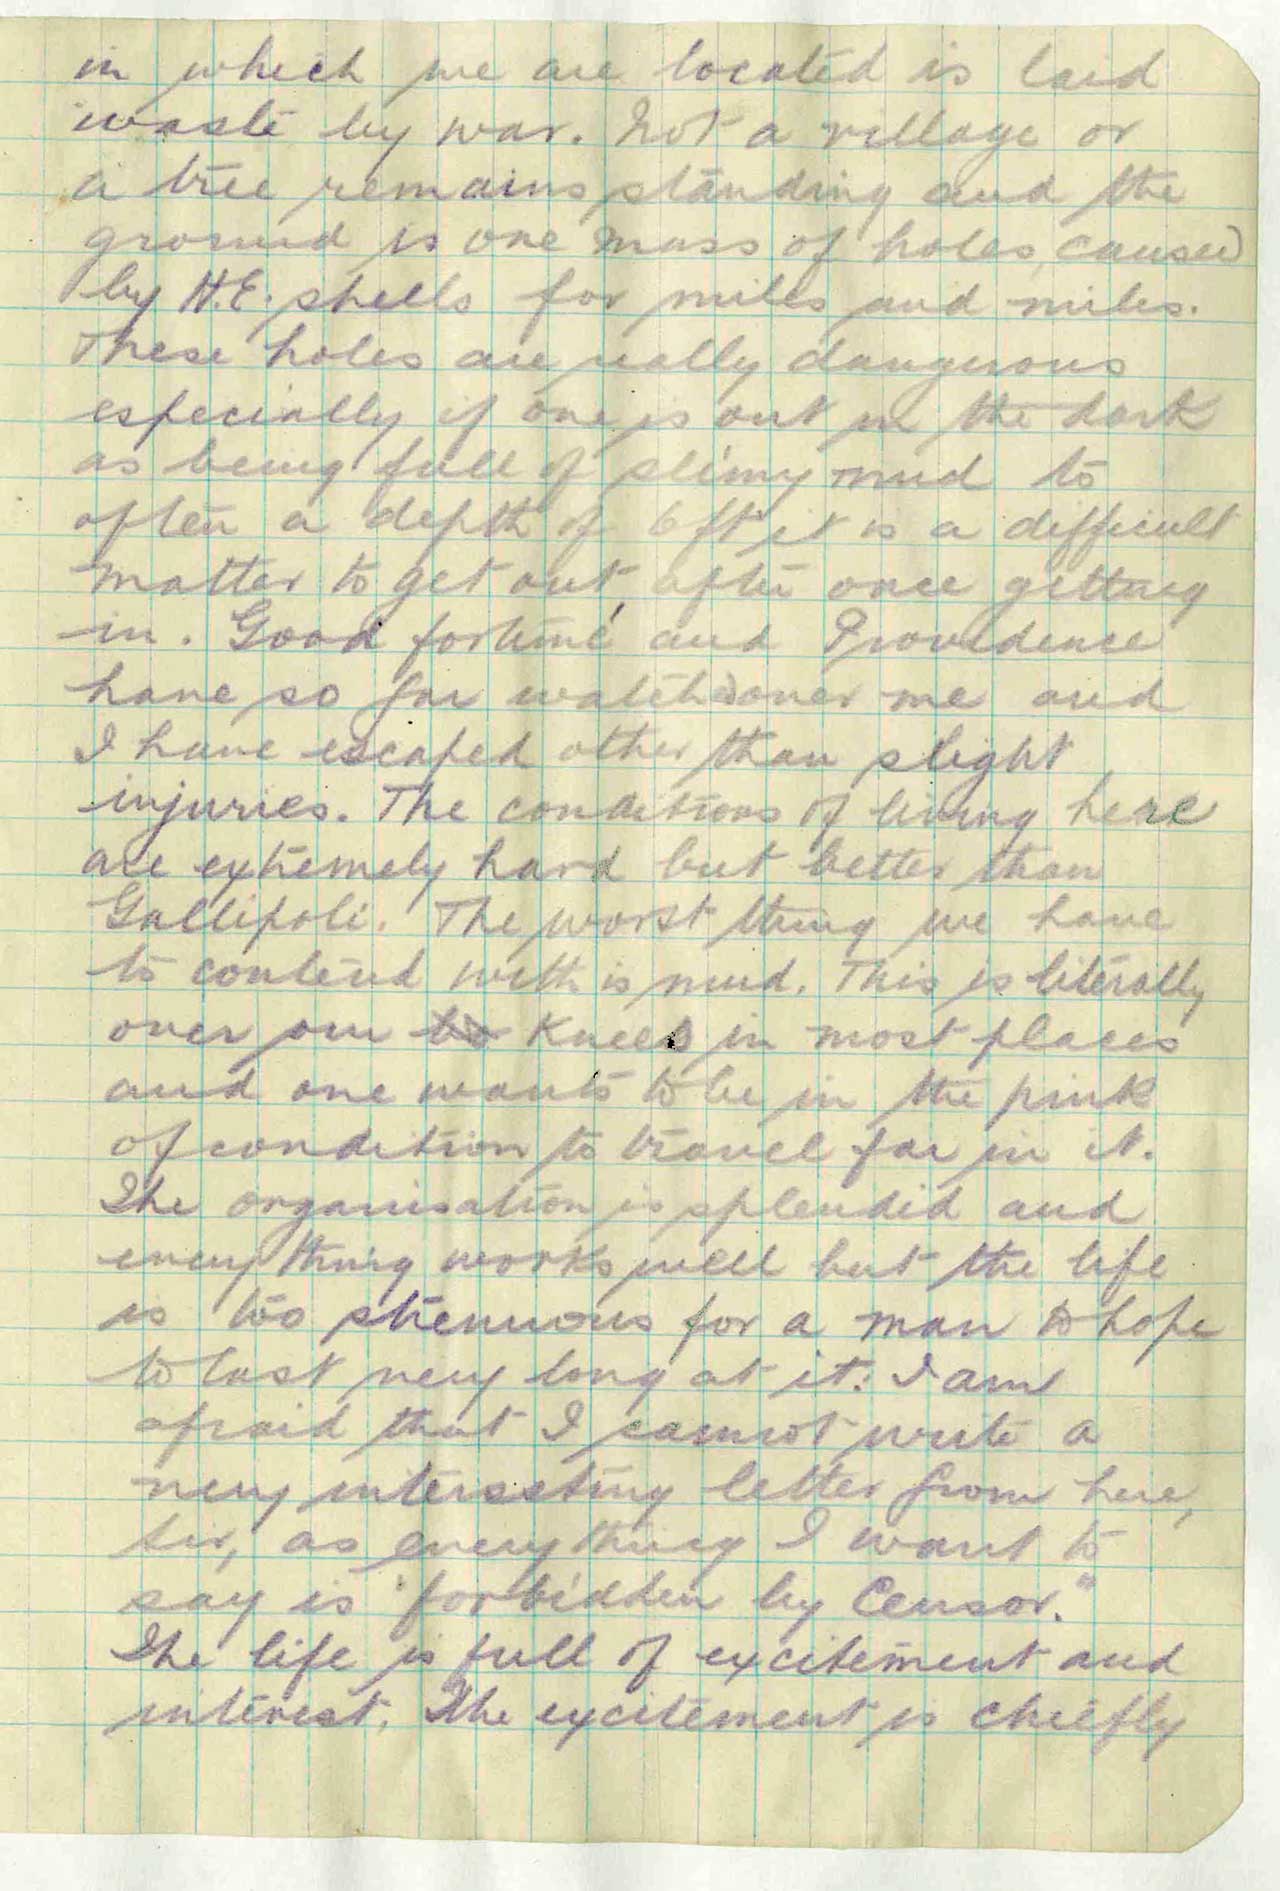 in which we are located is laid
waste by war. Not a village or
a tree remains standing and the
ground is one mass of holes, caused
by H.E. shells for miles and miles.
These holes are really dangerous
especially if one is out in the dark
as being full of slimy mud to
often a depth of 6 ft it is a difficult
matter to get out, after once getting
in. Good fortune and Providence
have so far watched over me and
I have escaped other than slight
injuries. The conditions of living here
are extremely hard but better than
Gallipoli. The worst thing we have
to contend with is mud. This is literally
over our to knees in most places
and one wants to be in the pink
of condition to travel far in it.
The organisation is splendid and
everything works well but the life
is too strenuous for a man to hope
to last very long at it. I am
afraid that I cannot write a
very interesting letter from here,
sir, as everything I want to
say is "forbidden by Censor."
The life is full of excitement and
interest. The excitement is chiefly